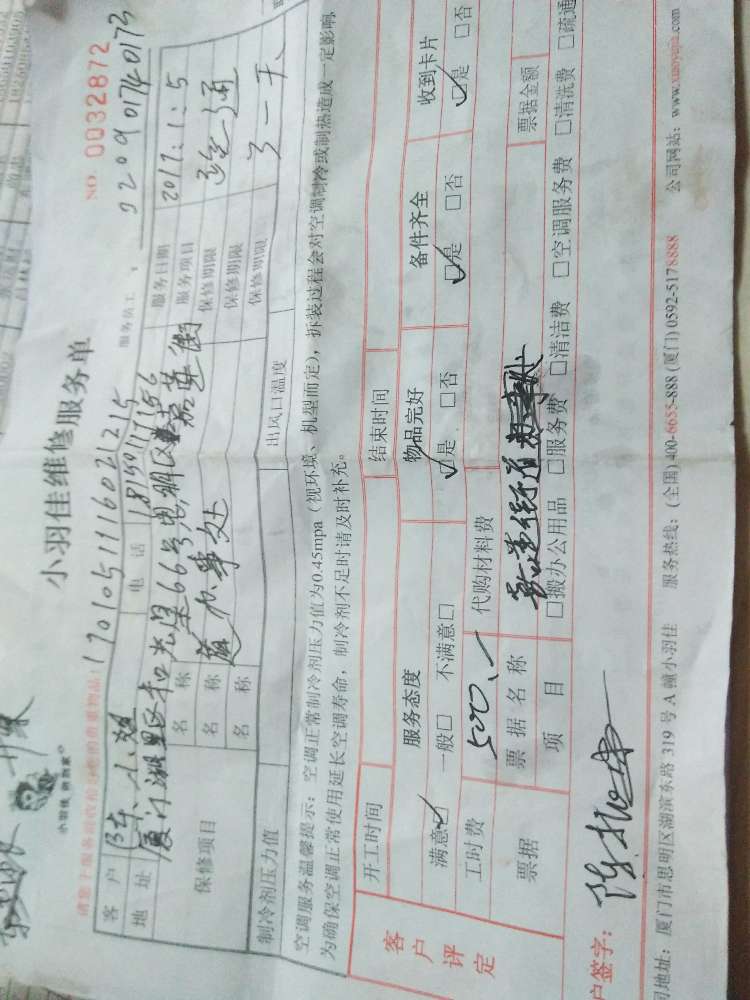 NO. 0032872
小羽佳维修服务单
小羽佳 俐到家
请您主服务前收拾好您的贵重物品:
17010511116021215
服务员工
92090174 0173
客户 陈小姐 电话 18150117166 服务日期 2017.1.5
地址 66号思明区嘉莲街 服务项目 疏通
办事处
保修项目 名称 保修期限
名称 保修期限
名称 保修期限
制冷剂压力值 出风口温度
空调服务温馨提示:空调正常制冷剂压力值为0.45mpa(视环境、机型而定),拆装过程会对空调制冷或制热造成一定影响,
为确保空调正常使用延长空调寿命,制冷剂不足时请及时补充。
开工时间 结束时间
客户评定 服务态度 物品完好 备件齐全 收到卡片
满意☑ 一般□ 不满意□ ☑是 □否 ☑是 □否 ☑是 □否
工时费 500.- 代购材料费
票据 票据名称 嘉莲街道办事处 票据金额
项目 □搬办公用品 □服务费 □清洁费 □空调服务费 □清洗费 □疏通
户签字:
地址:厦门市思明区湖滨东路 319 号 A 幢小羽佳 服务热线:(全国)400-8655-888 (厦门)0592-5178888 公司网站:www.xiaoyujia.com